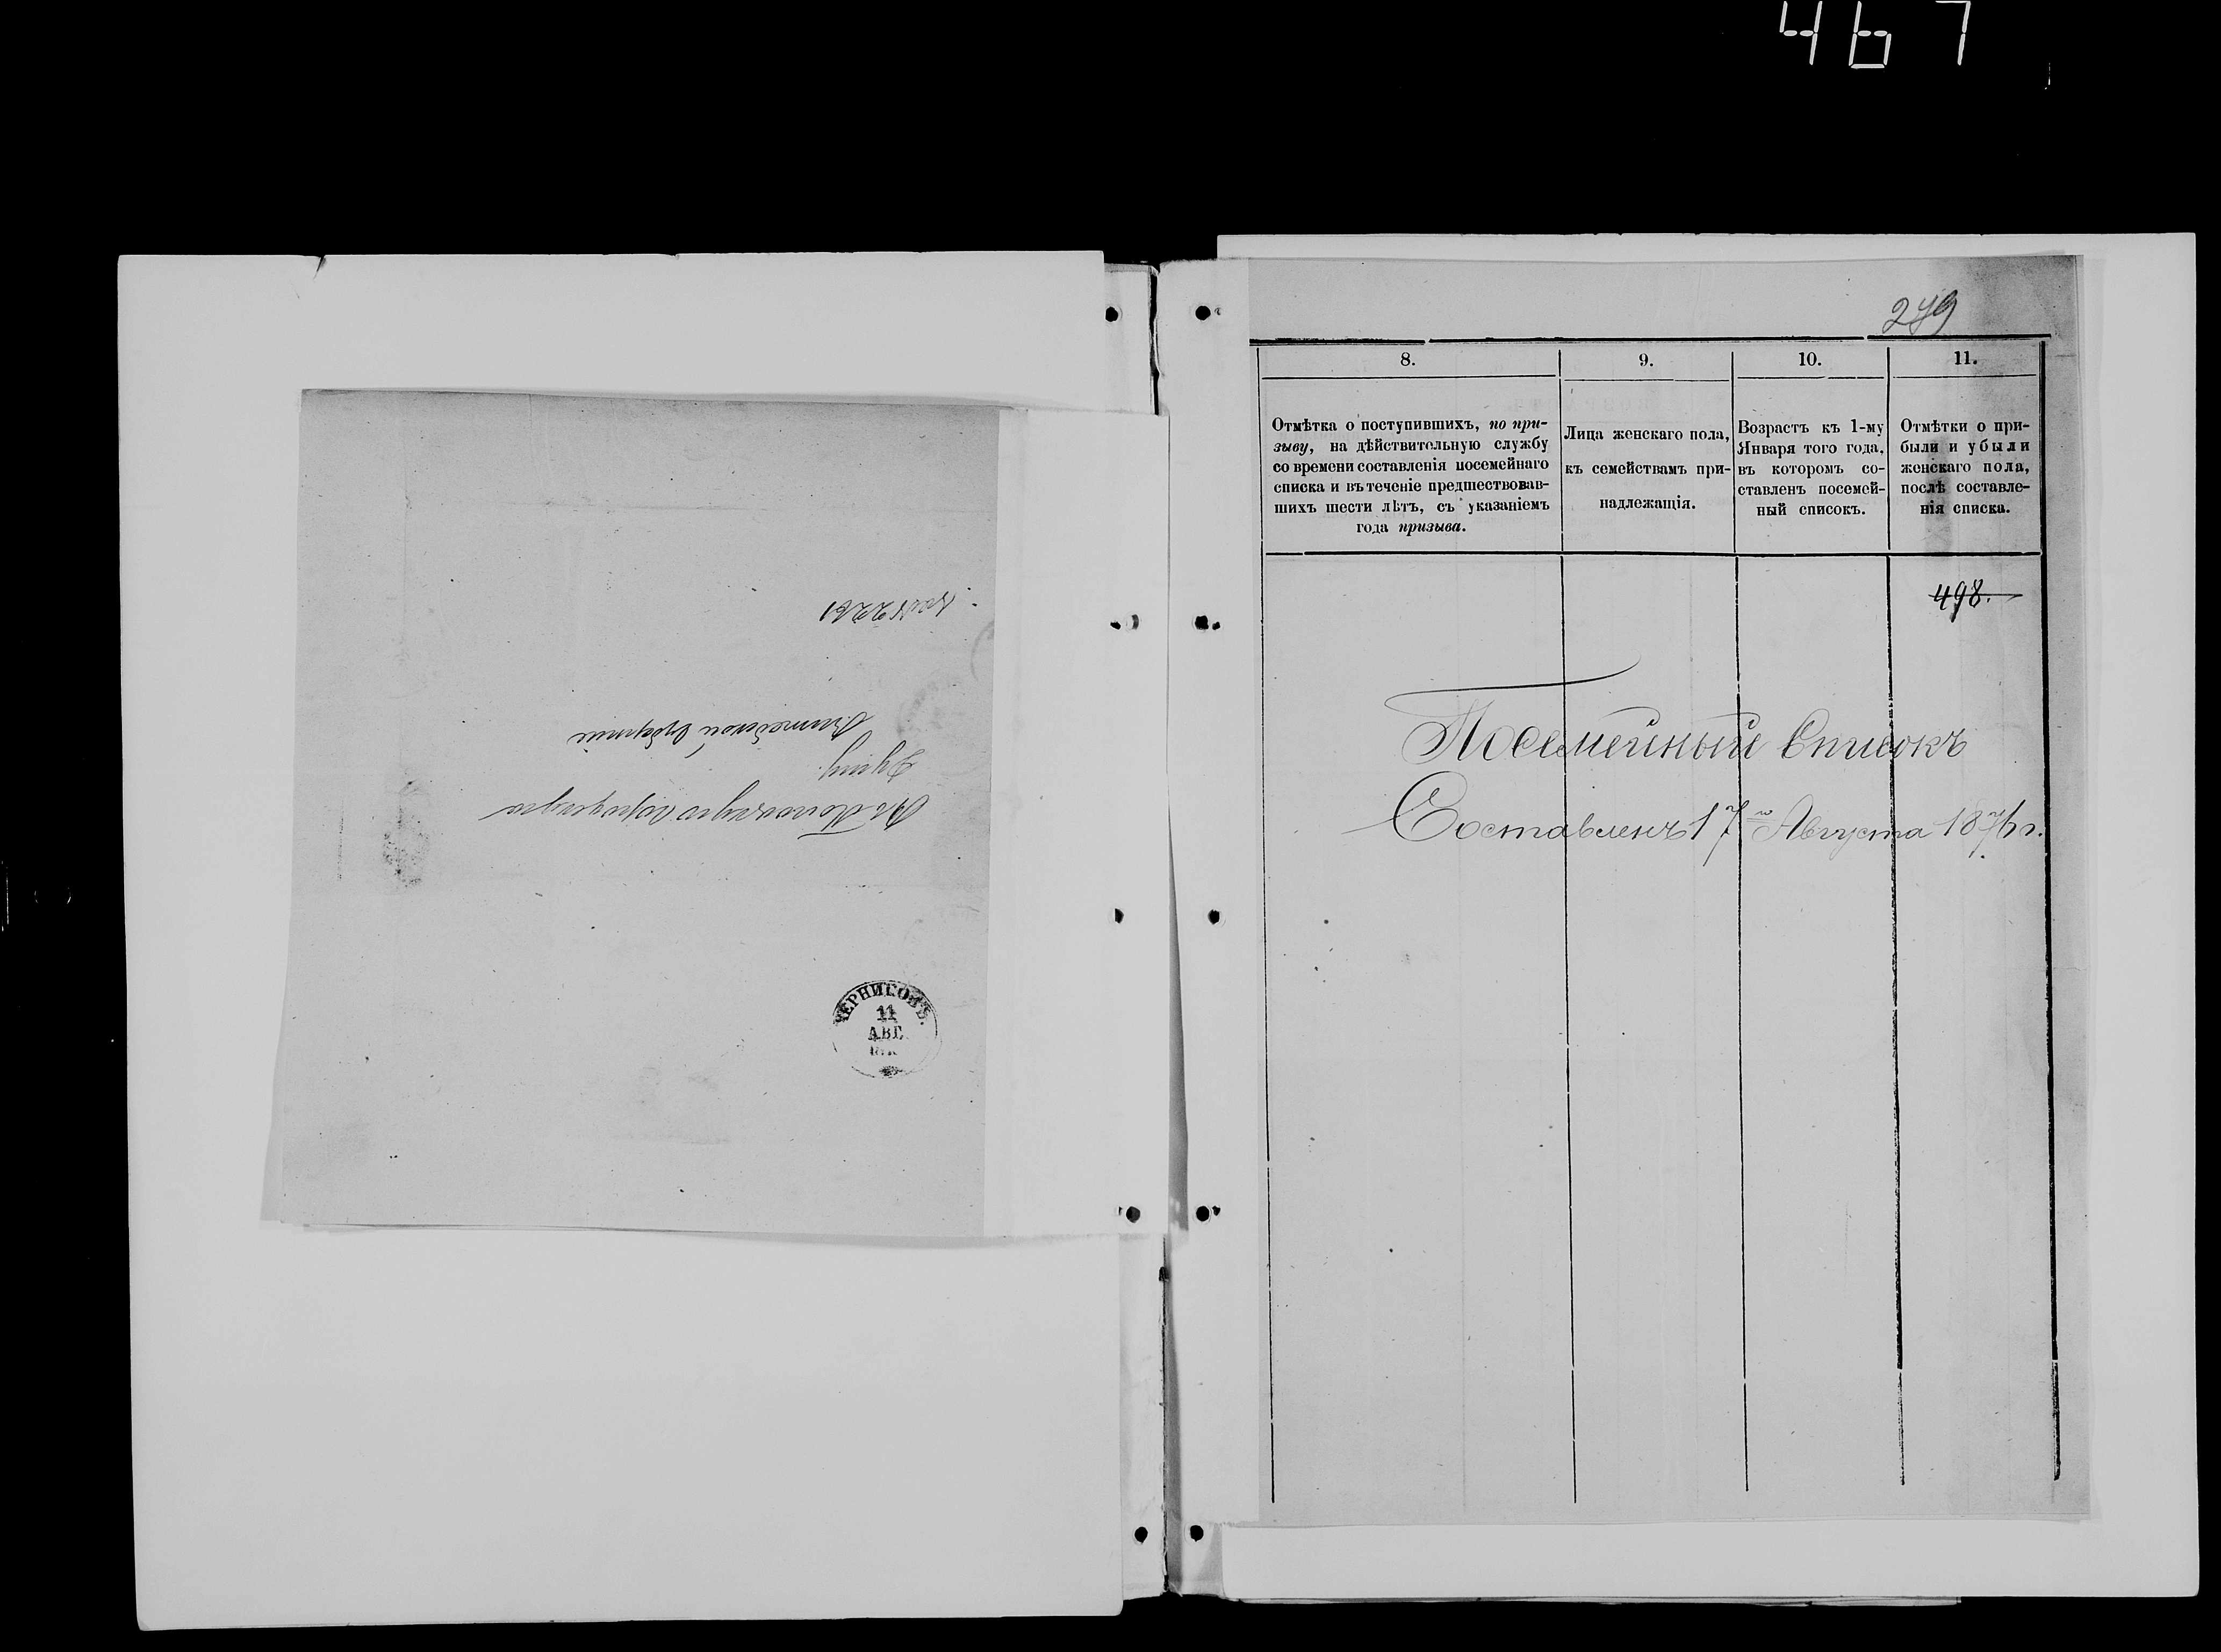 467
Въ Полоцкую городскую
Думу.
Витебской Губерніи
ЧЕРНИГОВЪ.
11
АВГ.
249
8.
Отмѣтка о поступившихъ, по при-
зыву, на дѣйствительную службу
со времени составленія посемейнаго
списка и въ теченіе предшествовав-
шихъ шести лѣтъ, съ указаніемъ
года призыва.
9.
Лица женскаго пола,
къ семействамъ при-
надлежащія.
10.
Возрастъ къ 1-му
Января того года,
въ которомъ со-
ставленъ посемей-
ный списокъ.
11.
Отмѣтки о при-
были и убыли
женскаго пола,
послѣ составле-
нія списка.
498.
Посемейный Списокъ
Составленъ 17го Августа 1876 г.